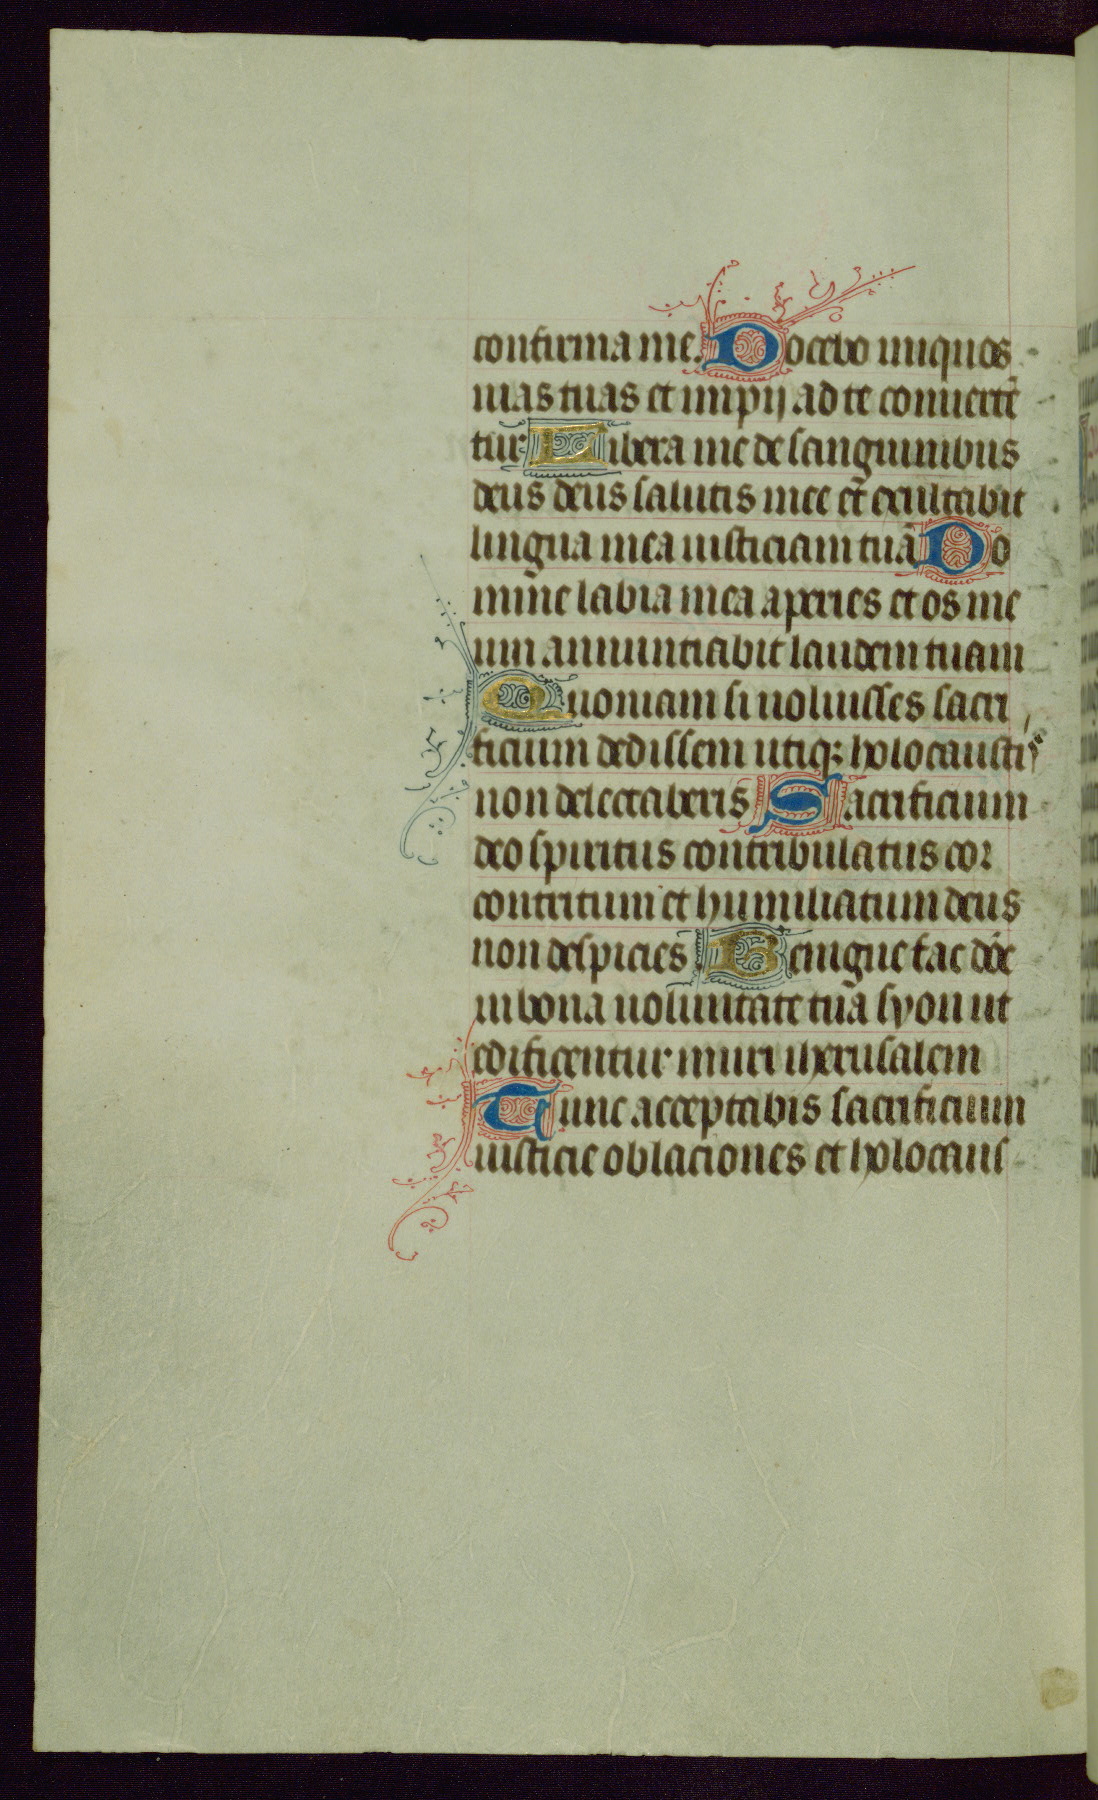 confirma me. Docebo iniquos
uias tuas et impij ad te conuertẽ
tur Libera me de sanguinibus
deus deus salutis mee et̃ exultabit
lingua mea iusticiam tuã Do
mine labia mea aperies et os me
um annunciabit laudem tuam
Quoniam si uoluisses sacri
ficium dedissem utiqꝫ holocausti
non delectaberis Sacrificium
deo spiritus contribulatus cor
contritum et humiliatum deus
non despicies Benigne fac dñe
in bona uoluntate tua syon ut
edificentur muri iherusalem
Tunc acceptabis sacrificium
iusticie oblaciones et holocaus